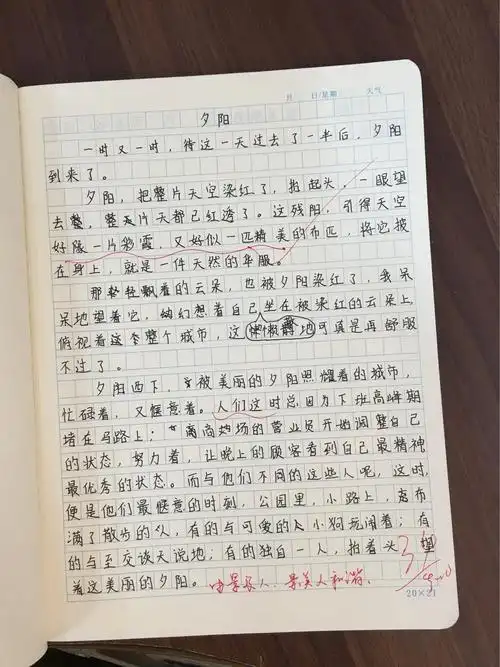 月 日/星期 天气
夕阳
一时又一时，待这一天过去了一半后，夕阳
到来了。
夕阳，把整片天空染红了，抬起头，一眼望
去，整片天都已红透了。这残阳，引得天空
好像一片彩霞，又好似一匹精美的布匹，将它披
在身上，就是一件天然的华服。
那轻轻飘着的云朵，也被夕阳染红了，我呆
呆地望着它，幻想着自己坐在被染红的云朵上，
俯视着这整个城市，这可真是再舒服
不过了。
夕阳西下，被美丽的夕阳照耀着的城市，
忙碌着，又惬意着。人们这时总因为下班高峰期
堵在马路上；商场的营业员开始调整自己
的状态，努力着，让晚上的顾客看到自己最精神
最优秀的状态。而与他们不同的这些人呢，这时，
便是他们最惬意的时刻，公园里，小路上，布
满了散步的人，有的与可爱的小狗玩闹着；有
的与至交谈天说地；有的独自一人，抬着头，望
着这美丽的夕阳。
由景及人，景美人和谐。
20×21